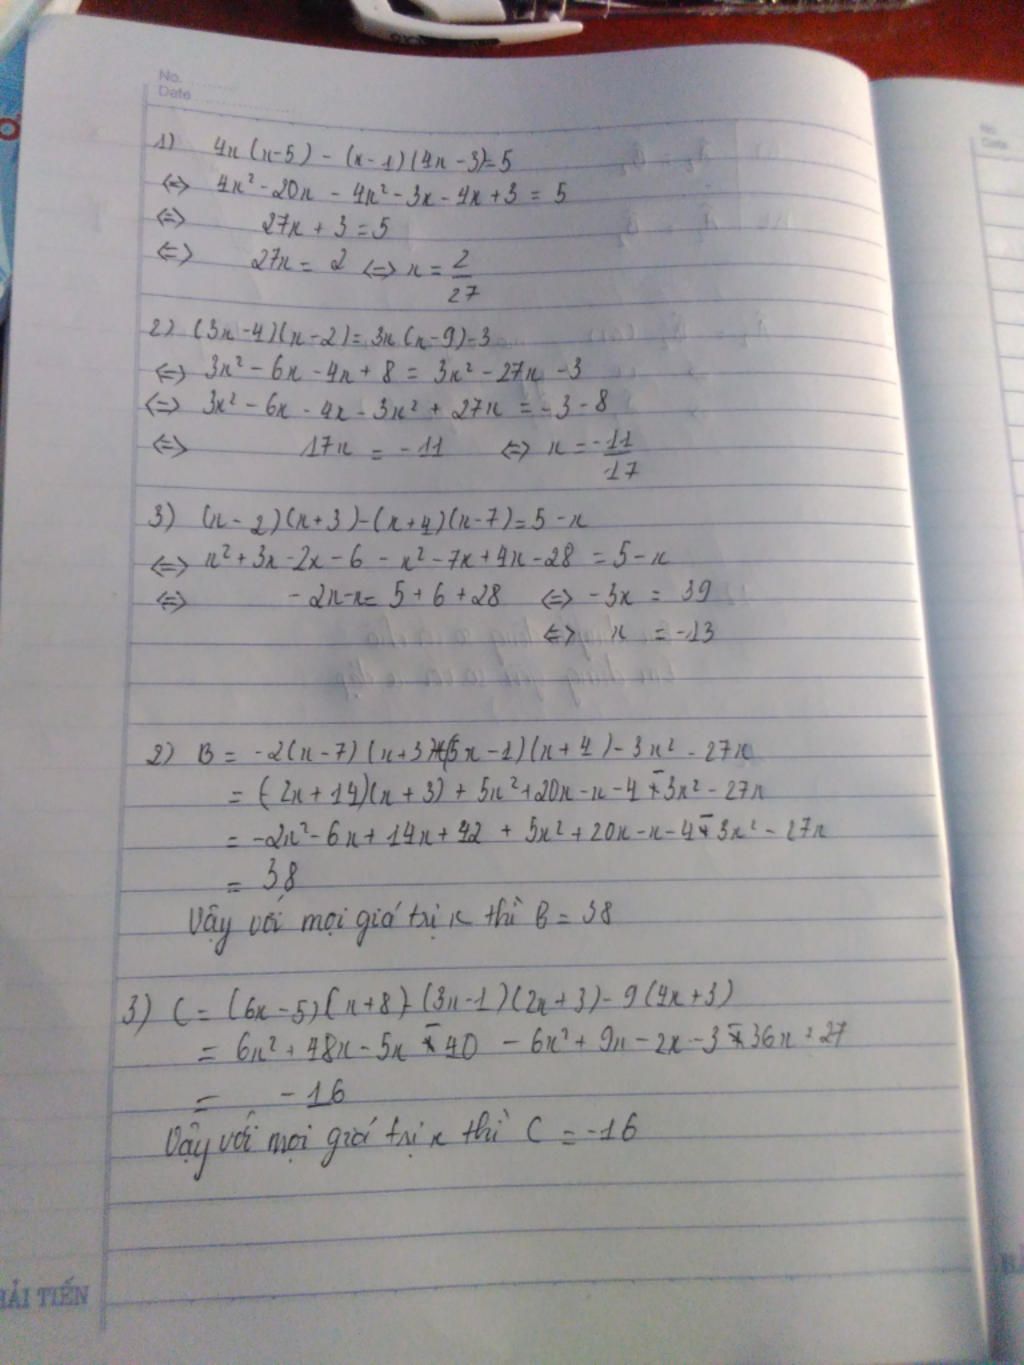 No.
Date
1) 4x(x-5) - (x-1)(4x-3)=5
<=> 4x² - 20x - 4x² - 3x - 4x + 3 = 5
<=> 27x + 3 = 5
<=> 27x = 2 <=> x = 2/27
2) (3x-4)(x-2) = 3x(x-9)-3
<=> 3x² - 6x - 4x + 8 = 3x² - 27x - 3
<=> 3x² - 6x - 4x - 3x² + 27x = -3 - 8
<=> 17x = -11 <=> x = -11/17
3) (x-2)(x+3)-(x+4)(x-7)=5-x
<=> x² + 3x - 2x - 6 - x² - 7x + 4x - 28 = 5 - x
<=> -2x-x = 5 + 6 + 28 <=> -3x = 39
<=> x = -13
2) B = -2(x-7)(x+3)+(5x-1)(x+4) - 3x² - 27x
= (-2x+14)(x+3) + 5x² + 20x - x - 4 - 3x² - 27x
= -2x² - 6x + 14x + 42 + 5x² + 20x - x - 4 - 3x² - 27x
= 38
Vậy với mọi giá trị x thì B = 38
3) C = (6x-5)(x+8)-(3x-1)(2x+3)-9(4x+3)
= 6x² + 48x - 5x - 40 - 6x² + 9x - 2x - 3 - 36x + 27
= -16
Vậy với mọi giá trị x thì C = -16
HẢI TIẾN